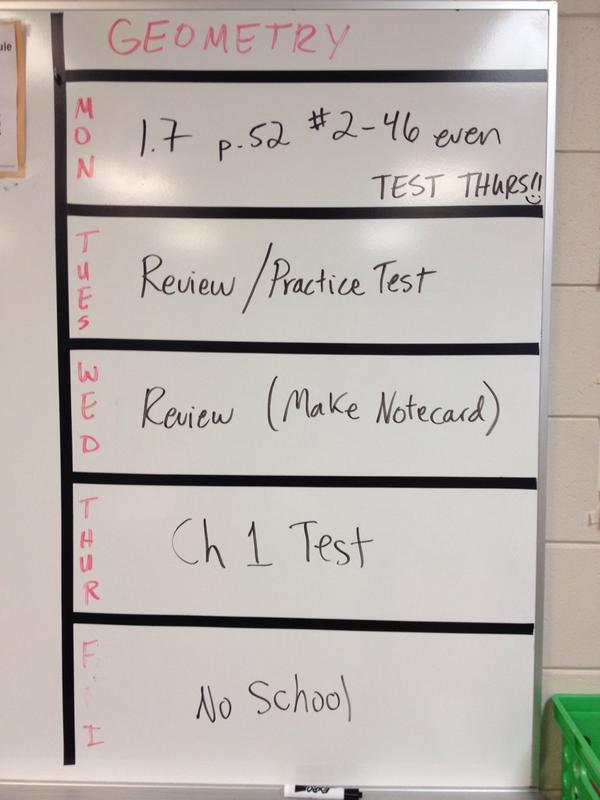 ule
GEOMETRY
MON
1.7 p.52 #2-46 even
TEST THURS!!
TUES
Review/Practice Test
WED
Review (Make Notecard)
THUR
Ch 1 Test
F I
No School